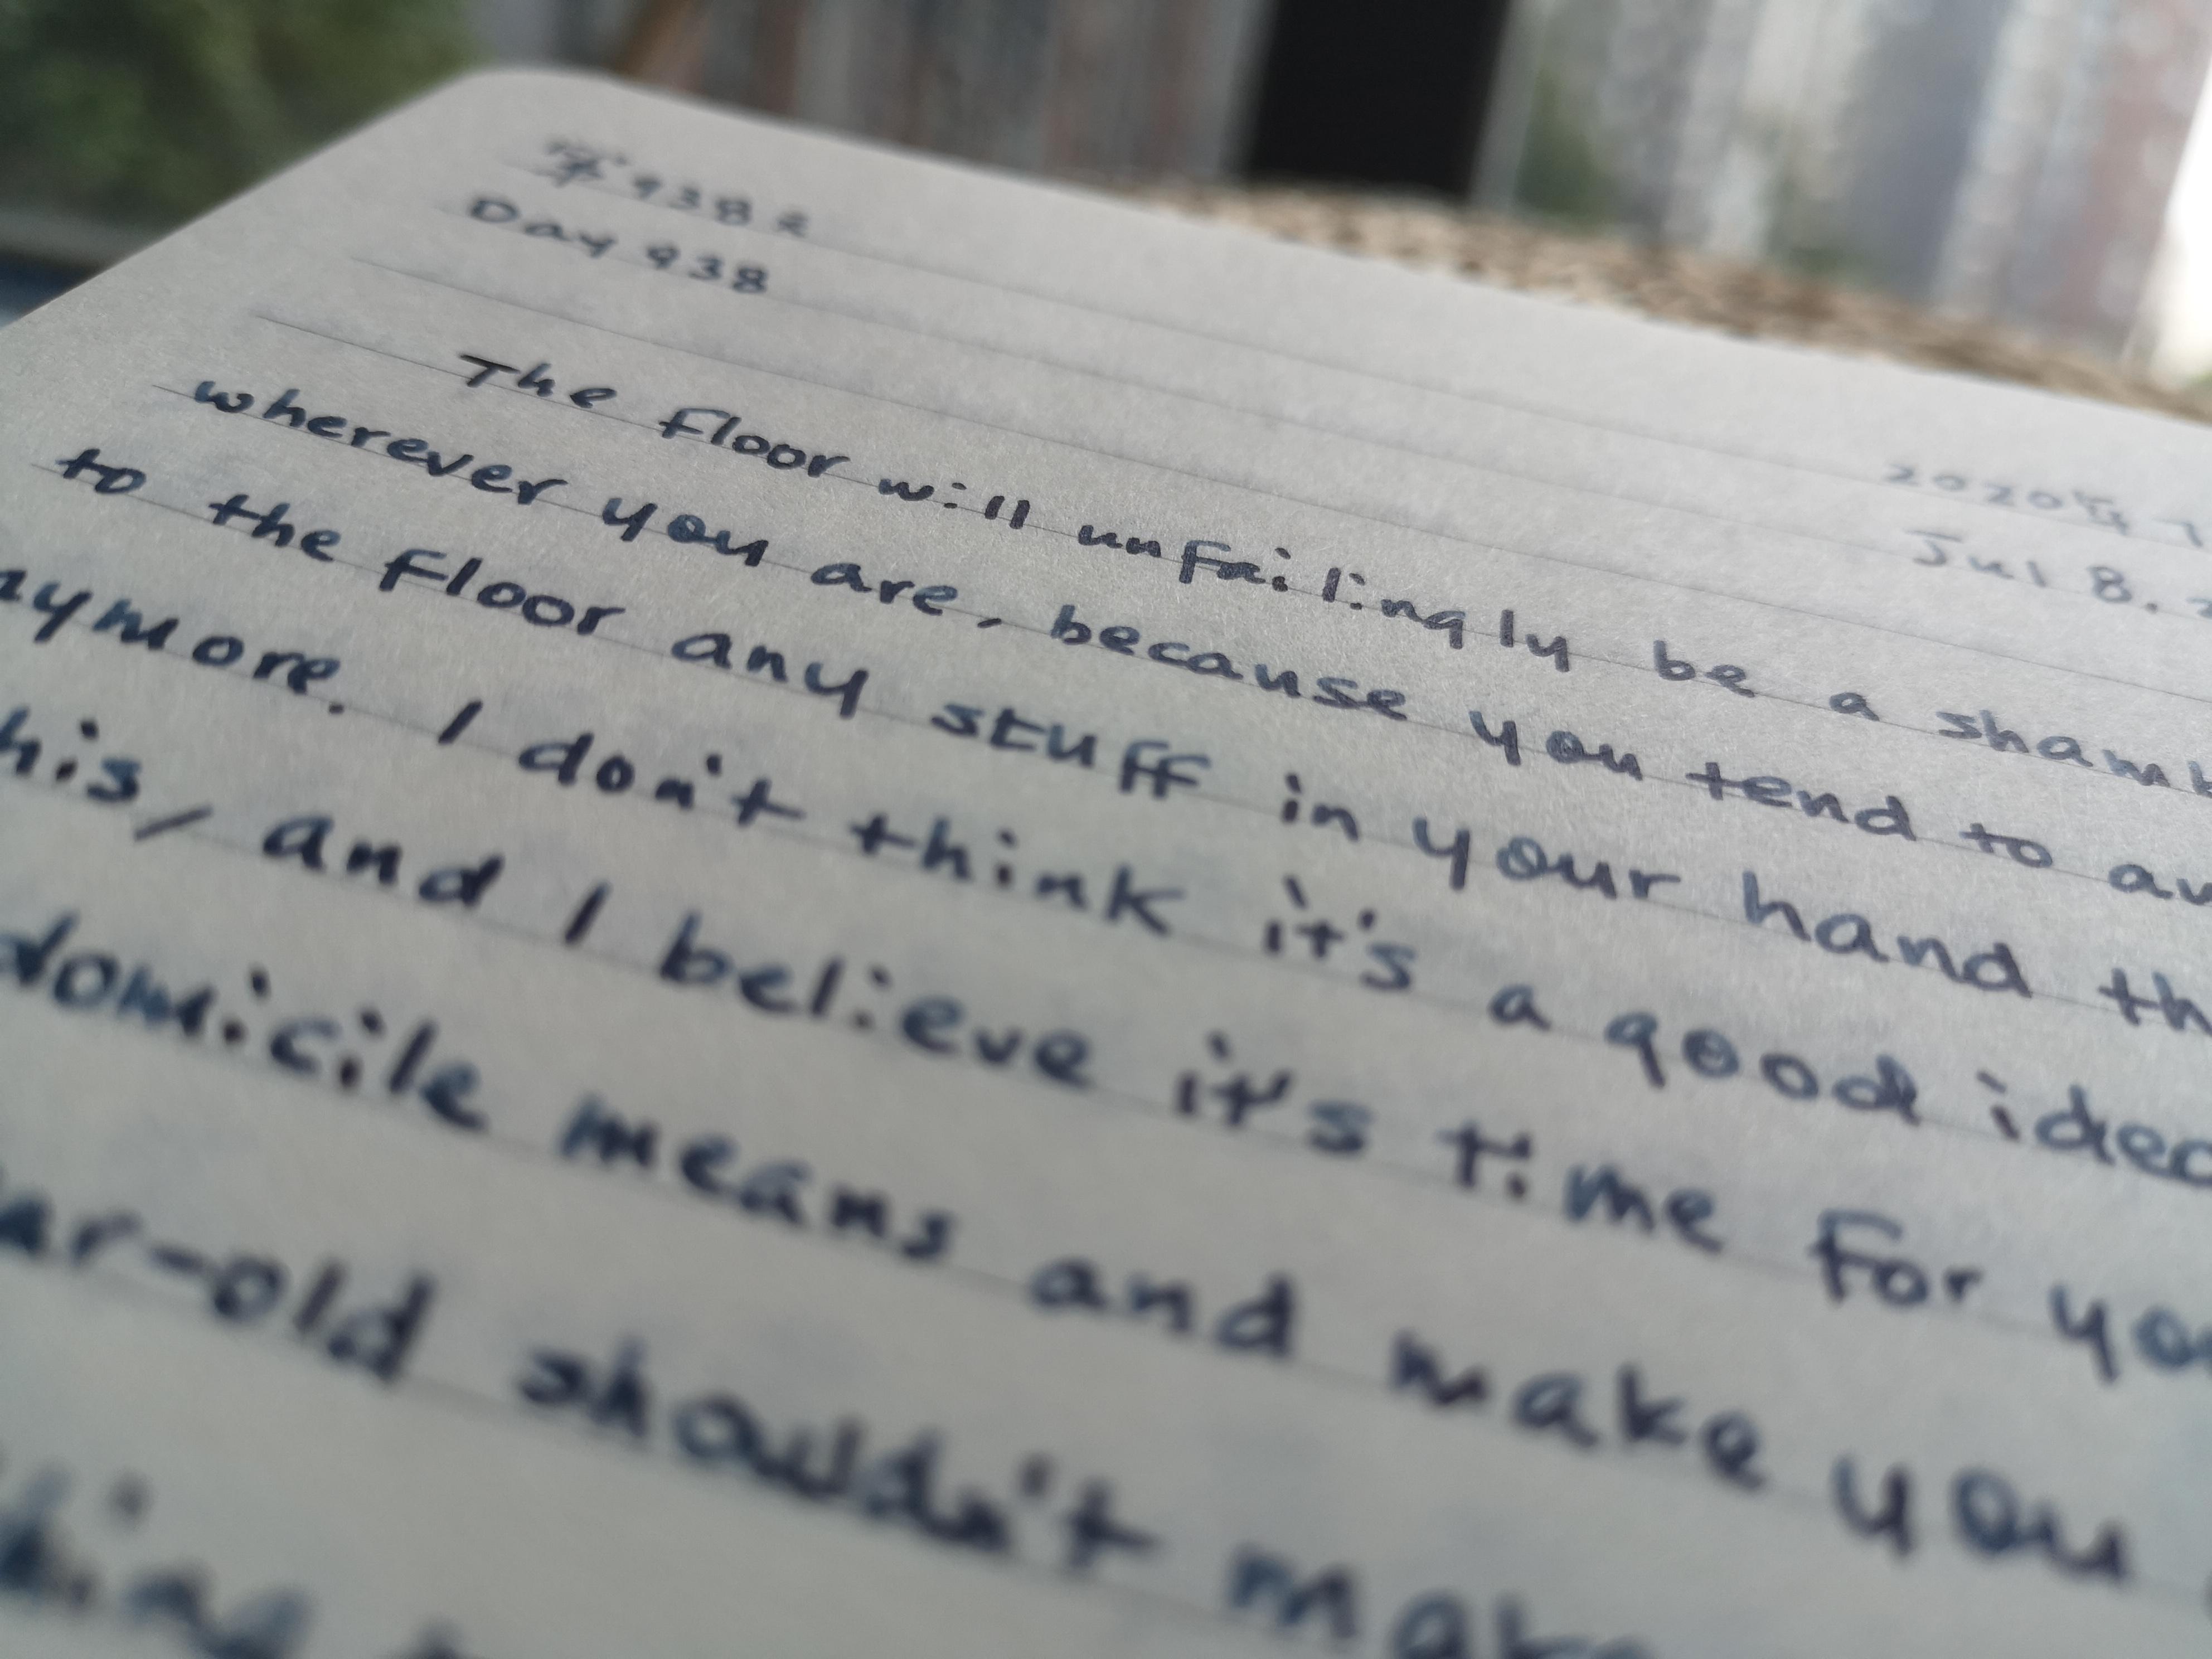 第938天
Day 938
2020年7
Jul 8.
The floor will unfailingly be a shamb
wherever you are, because you tend to
to the floor any stuff in your hand th
aymore. I don't think it's a good idea
his, and I believe it's time for you
domicile means and make you
ar-old shouldn't make